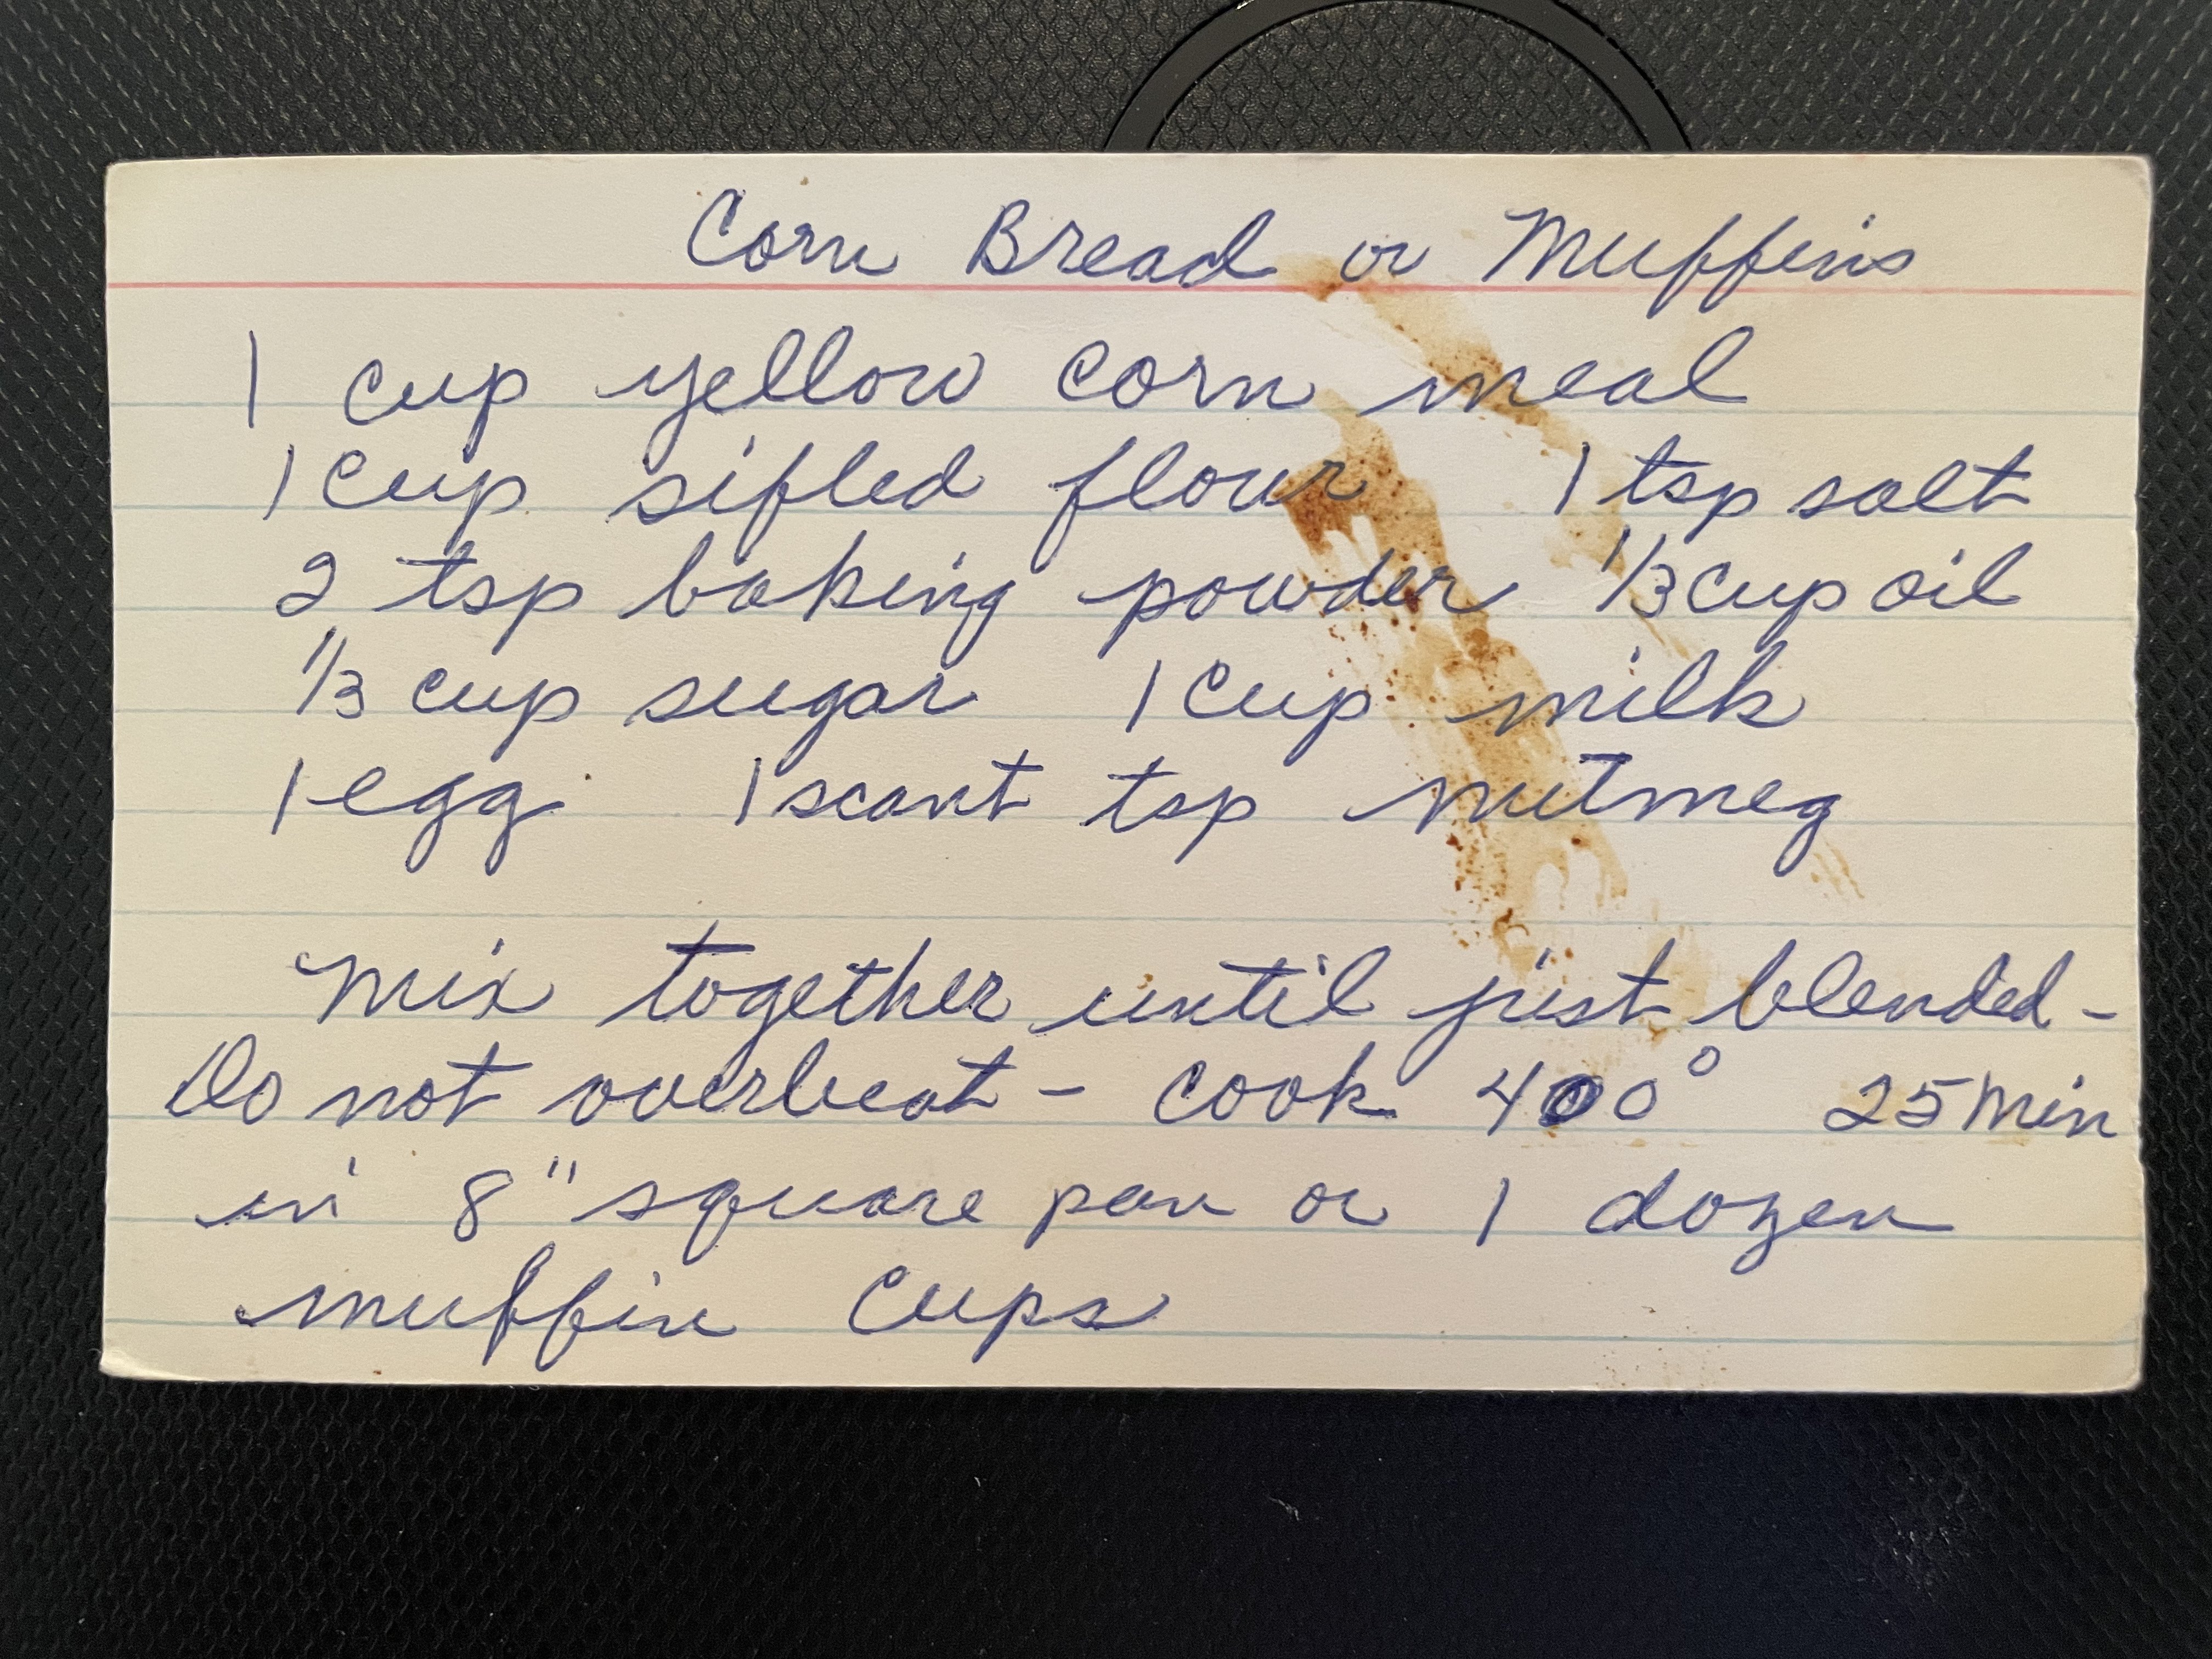 Corn Bread or Muffins
1 cup yellow corn meal
1 cup sifted flour 1 tsp salt
2 tsp baking powder 1/3 cup oil
1/3 cup sugar 1 cup milk
1 egg 1 scant tsp nutmeg
Mix together until just blended -
Do not overbeat - cook 400° 25 min
in 8" square pan or 1 dozen
muffin cups